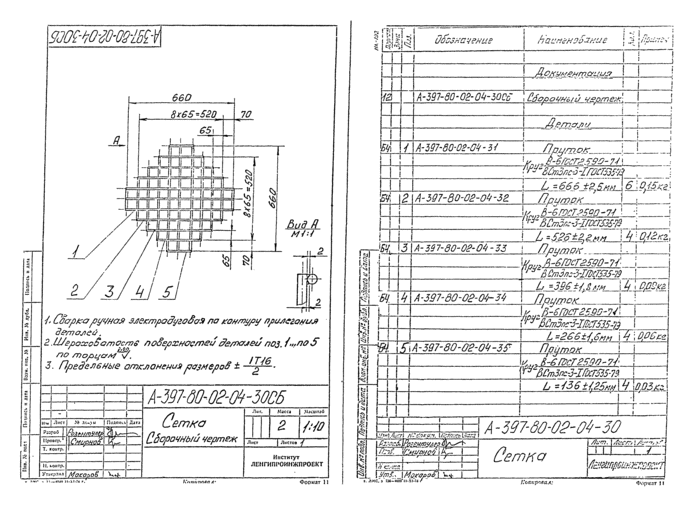 А-397-80-02-04-30СБ
660
8х65=520
65
70
А
8х65=520
660
65
70
Вид А
М1:1
2
2
1
2
3
4
5
1. Сварка ручная электродуговая по контуру прилегания
деталей.
2. Шероховатость поверхностей деталей поз. 1...по 5
по торцам
3. Предельные отклонения размеров ± IT16/2.
А-397-80-02-04-30СБ
Сетка
Сборочный чертеж
Лит. Масса Масштаб
2 1:10
Лист Листов 1
Изм Лист № докум Подпись Дата
Разраб
Провер. Смирнов
Т. контр.
Н. контр.
Утвердил Макаров
Институт
ЛЕНГИПРОИНЖПРОЕКТ
Копировал: Формат 11
Подпись и дата
Инв. № дубл.
Взам. инв. №
Подпись и дата
Инв. № подл
Поз. Обозначение Наименование Кол. Примеч
Документация
12 А-397-80-02-04-30СБ Сборочный чертеж
Детали
БЧ 1 А-397-80-02-04-31 Пруток
Круг В-6 ГОСТ 2590-71
ВСт3пс-3-I ГОСТ535-79
L=666±2,5мм 6 0,15кг
БЧ 2 А-397-80-02-04-32 Пруток
Круг В-6 ГОСТ 2590-71
ВСт3пс-3-I ГОСТ535-79
L=526±2,2мм 4 0,12кг
БЧ 3 А-397-80-02-04-33 Пруток
Круг В-6 ГОСТ 2590-71
ВСт3пс-3-I ГОСТ535-79
L=396±1,8мм 4 0,09кг
БЧ 4 А-397-80-02-04-34 Пруток
Круг В-6 ГОСТ 2590-71
ВСт3пс-3-I ГОСТ535-79
L=266±1,6мм 4 0,06кг
БЧ 5 А-397-80-02-04-35 Пруток
Круг В-6 ГОСТ 2590-71
ВСт3пс-3-I ГОСТ535-79
L=136±1,25мм 4 0,03кг
А-397-80-02-04-30
Сетка
Лит. Лист
1
Смирнов
Утв. Макаров
Копировал: Формат 11